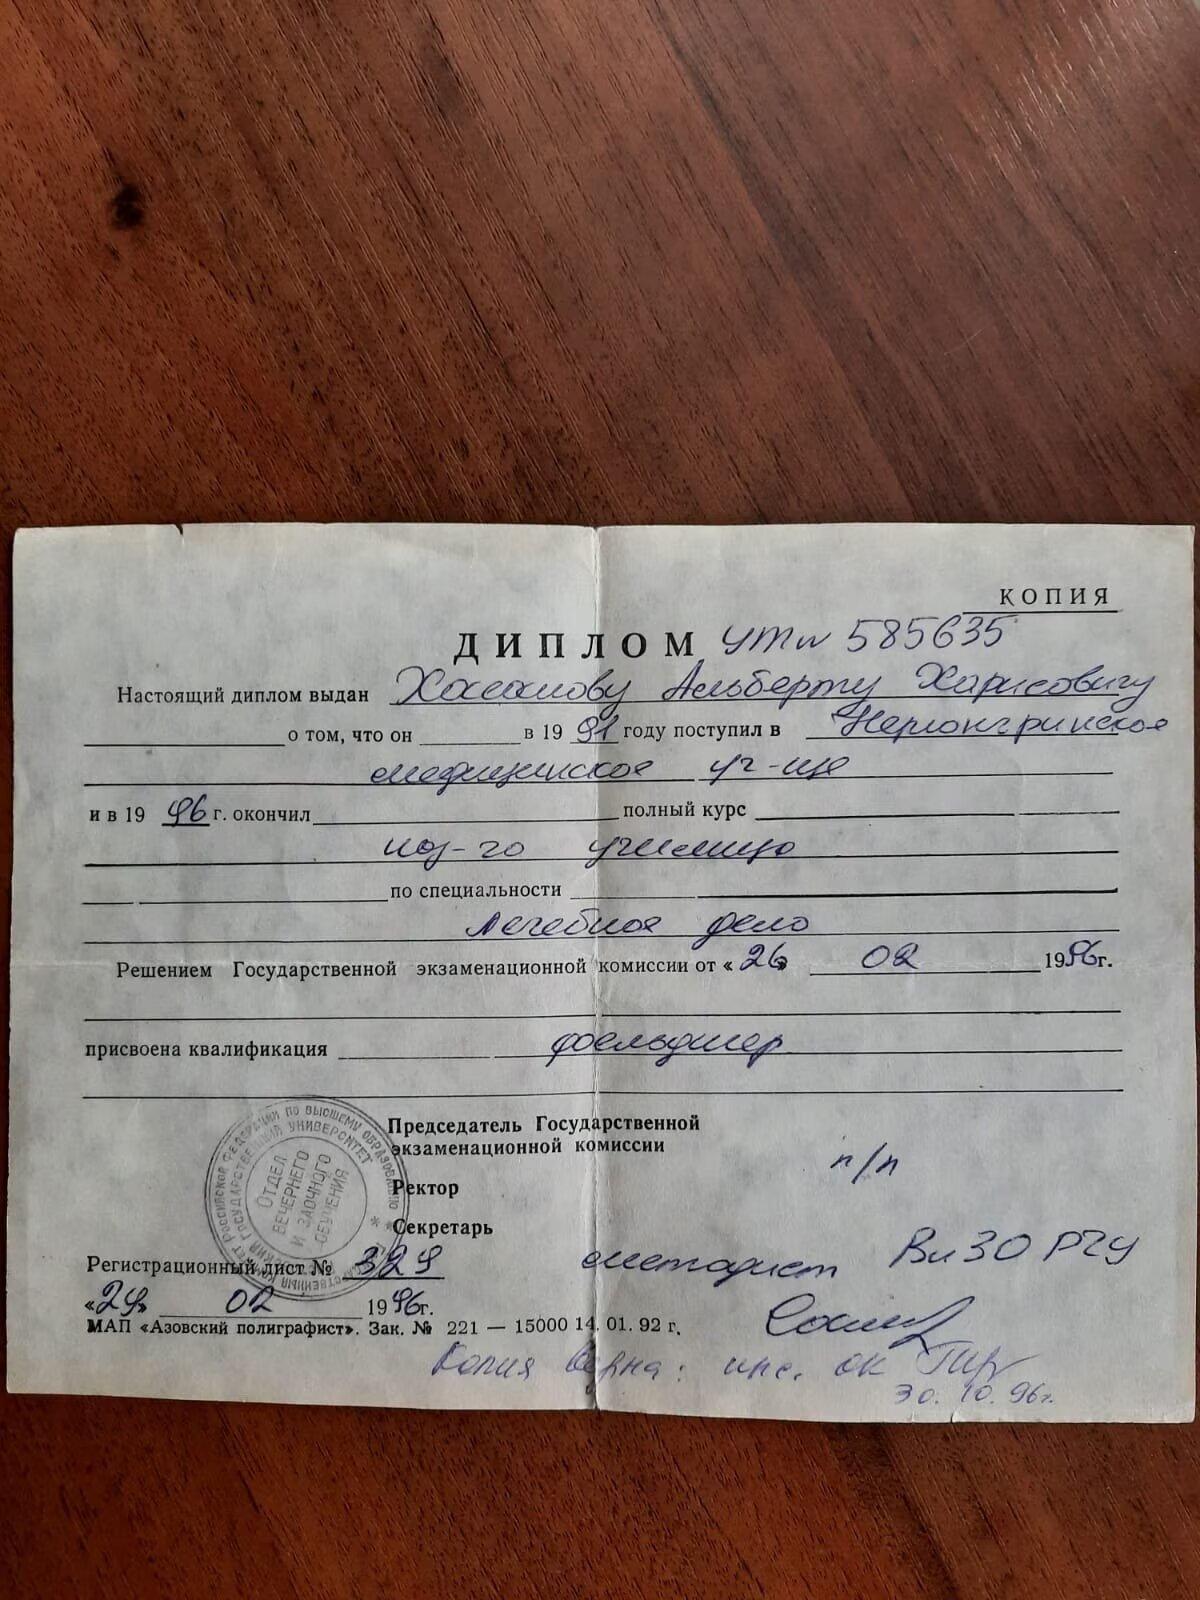 КОПИЯ
ДИПЛОМ УТ № 585635
Настоящий диплом выдан Хасанову Альберту Харисовичу
о том, что он в 19 91 году поступил в Нерюнгринское
медицинское уч-ще
и в 19 96 г. окончил полный курс
наз-го училища
по специальности
Лечебное дело
Решением Государственной экзаменационной комиссии от «26» 02 1996г.
присвоена квалификация фельдшер
Председатель Государственной
экзаменационной комиссии
п/п
Ректор
Секретарь
методист ВиЗО РГУ
Регистрационный лист № 329
«29» 02 1996г.
МАП «Азовский полиграфист». Зак. № 221 — 15000 14. 01. 92 г.
Копия верна: инс. ок
30. 10. 96г.
РОССИЙСКОЙ ФЕДЕРАЦИИ ПО ВЫСШЕМУ ОБРАЗОВАНИЮ
ГОСУДАРСТВЕННЫЙ УНИВЕРСИТЕТ
ОТДЕЛ
ВЕЧЕРНЕГО
И ЗАОЧНОГО
ОБУЧЕНИЯ